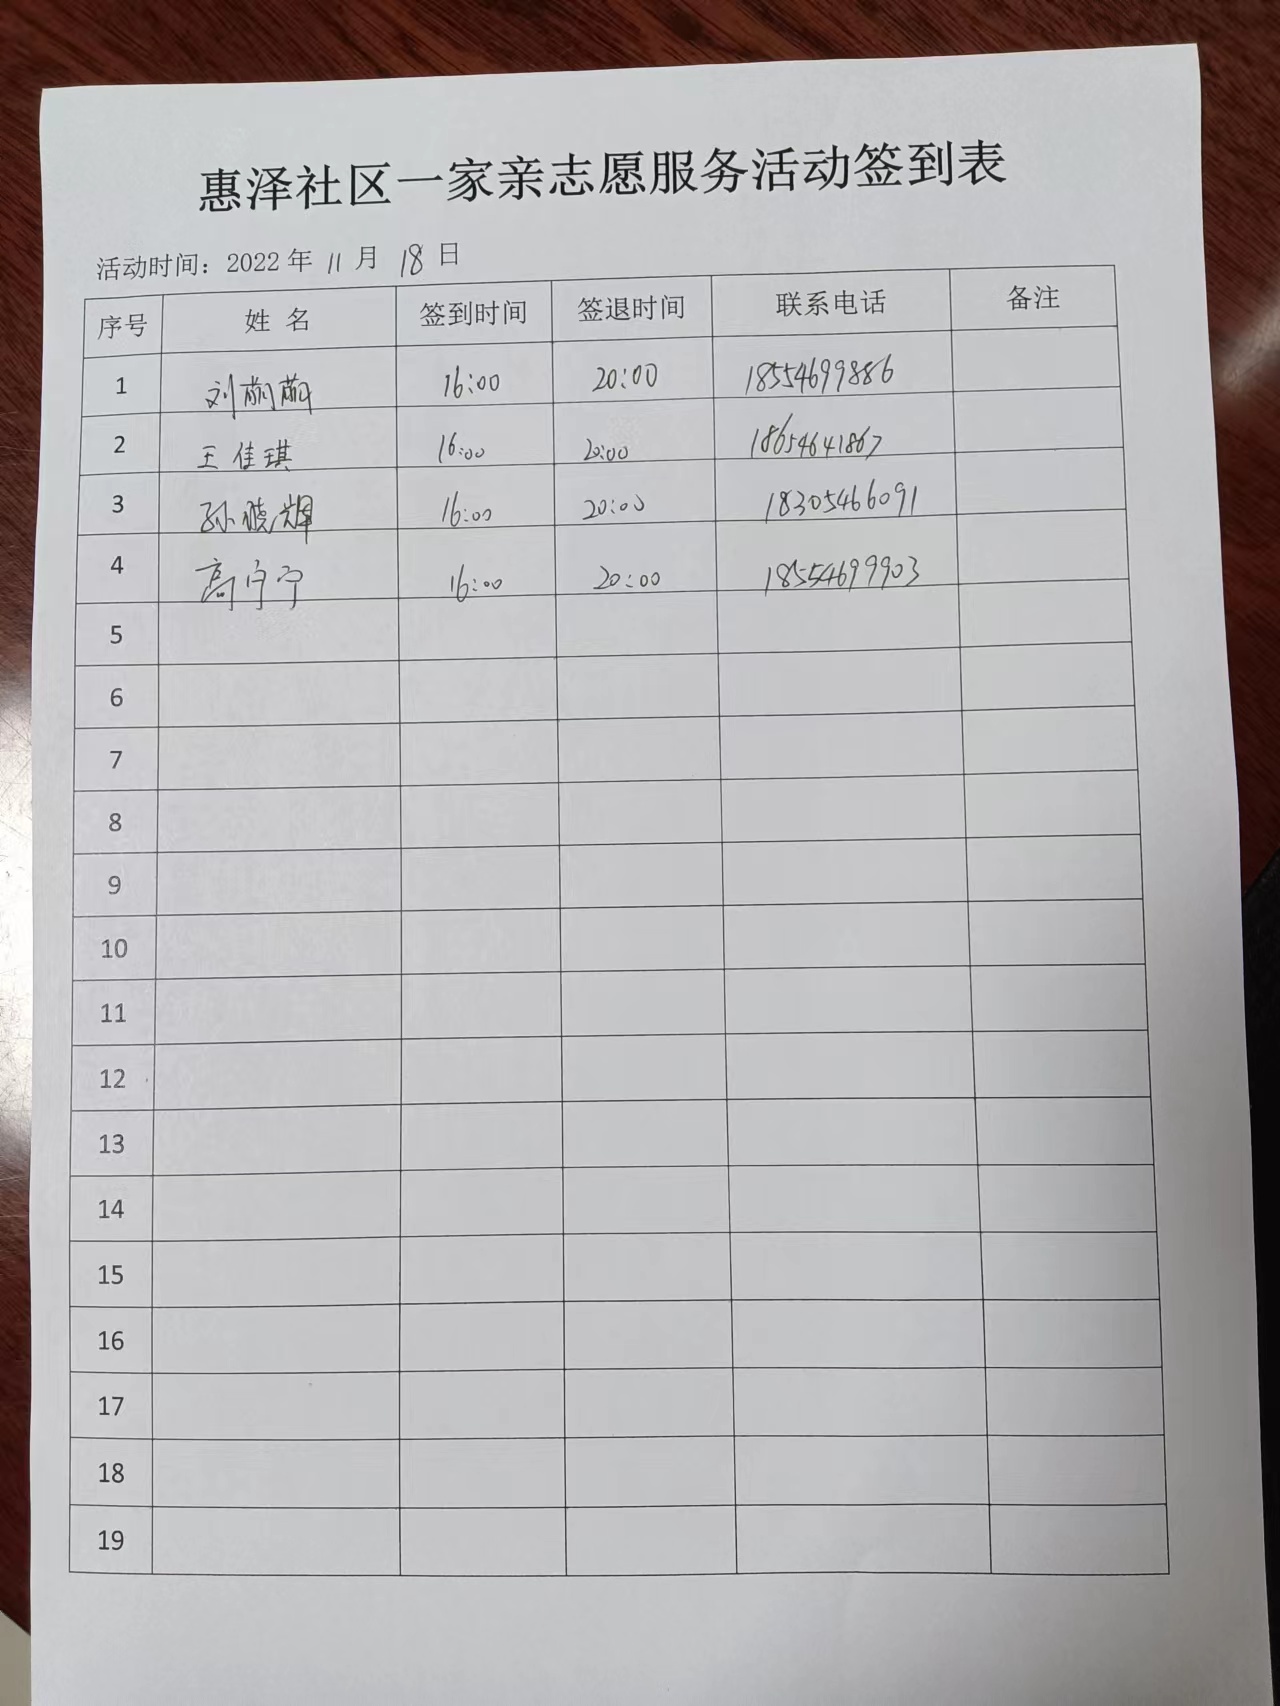 惠泽社区一家亲志愿服务活动签到表
活动时间：2022 年 11 月 18 日
序号 姓 名 签到时间 签退时间 联系电话 备注
1 刘萌萌 16:00 20:00 18554699886
2 王佳琪 16:00 20:00 18654641867
3 孙晓辉 16:00 20:00 18305466091
4 高宁宁 16:00 20:00 18554699903
5
6
7
8
9
10
11
12
13
14
15
16
17
18
19